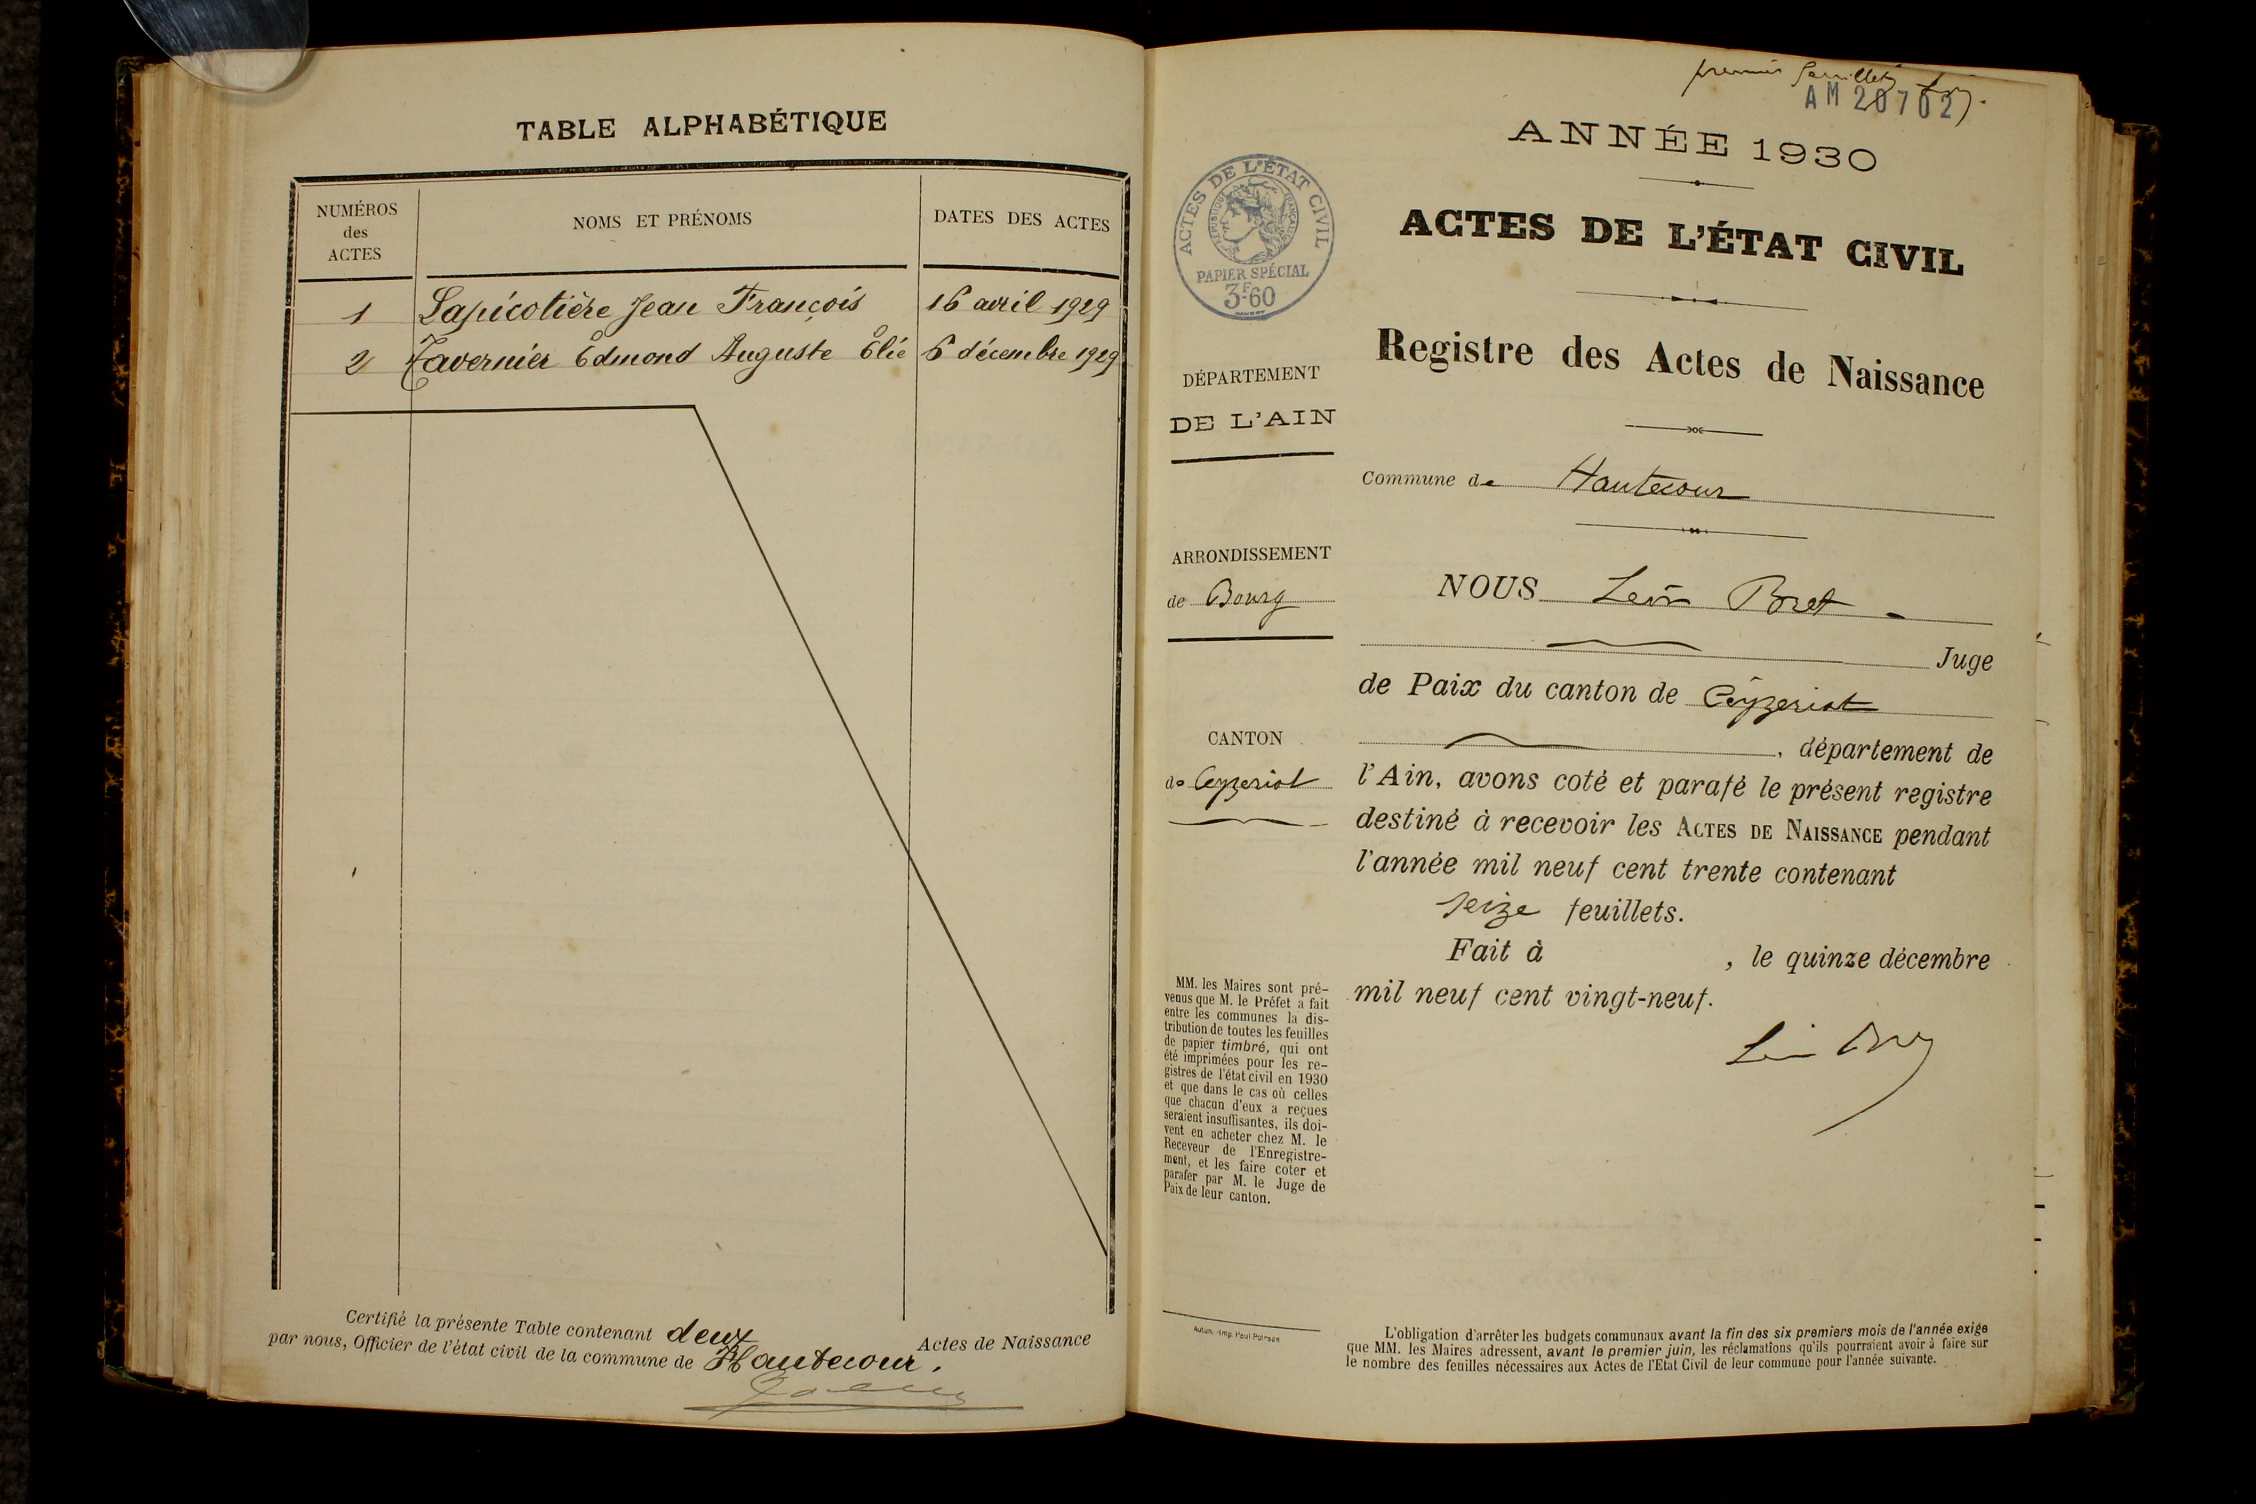 TABLE ALPHABÉTIQUE
NUMÉROS des ACTES
NOMS ET PRÉNOMS
DATES DES ACTES
1 Lapicotière Jean François 16 avril 1929
2 Tavernier Edmond Auguste Elie 6 décembre 1929
Certifié la présente Table contenant deux Actes de Naissance
par nous, Officier de l'état civil de la commune de Hautecour.
premier feuillet
AM 20702
ANNÉE 1930
ACTES DE L'ÉTAT CIVIL
RÉPUBLIQUE FRANÇAISE
PAPIER SPÉCIAL
3F60
ACTES DE L'ÉTAT CIVIL
Registre des Actes de Naissance
DÉPARTEMENT
DE L'AIN
Commune de Hautecour
ARRONDISSEMENT
de Bourg
NOUS Léon Bret
Juge
de Paix du canton de Ceyzeriat
CANTON
de Ceyzeriat
, département de
l'Ain, avons coté et parafé le présent registre
destiné à recevoir les ACTES DE NAISSANCE pendant
l'année mil neuf cent trente contenant
seize feuillets.
Fait à , le quinze décembre
mil neuf cent vingt-neuf.
MM. les Maires sont pré-
venus que M. le Préfet a fait
entre les communes la dis-
tribution de toutes les feuilles
de papier timbré, qui ont
été imprimées pour les re-
gistres de l'état civil en 1930
et que dans le cas où celles
que chacun d'eux a reçues
seraient insuffisantes, ils doi-
vent en acheter chez M. le
Receveur de l'Enregistre-
ment, et les faire coter et
parafer par M. le Juge de
Paix de leur canton.
L'obligation d'arrêter les budgets communaux avant la fin des six premiers mois de l'année exige
que MM. les Maires adressent, avant le premier juin, les réclamations qu'ils pourraient avoir à faire sur
le nombre des feuilles nécessaires aux Actes de l'Etat Civil de leur commune pour l'année suivante.